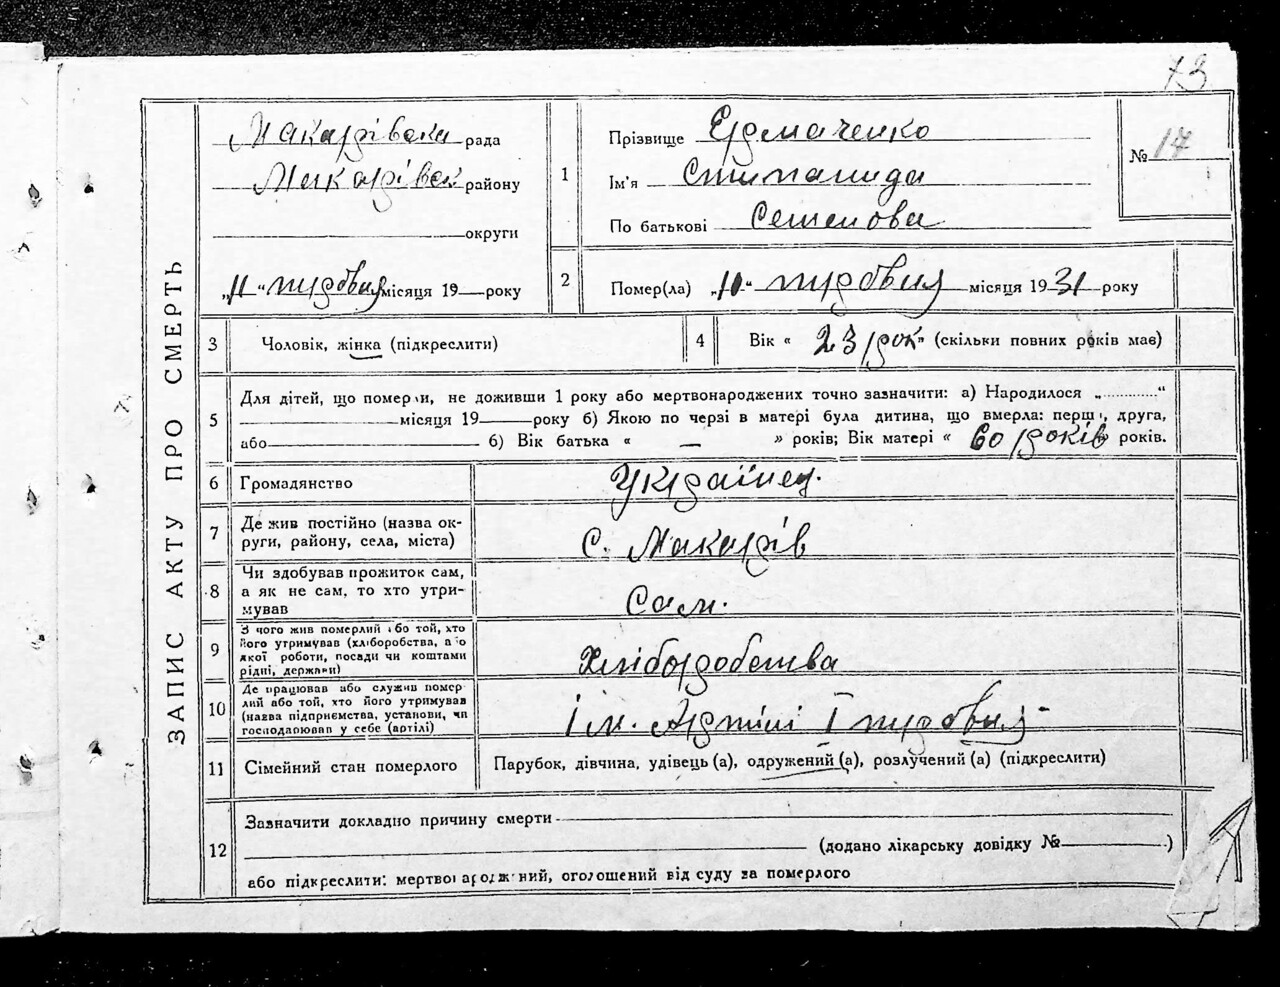 73
ЗАПИС АКТУ ПРО СМЕРТЬ
Макарівська рада
Макарівськ району
округи
„11“ трудовня місяця 19 року
1
Прізвище Єрмаченко
Ім'я Степанида
По батькові Семенова
№ 17
2
Помер(ла) „10“ місяця 1931 року
3 Чоловік, жінка (підкреслити)
4 Вік « 23 рок » (скільки повних років має)
5
Для дітей, що померли, не доживши 1 року або мертвонароджених точно зазначити: а) Народилося „ “
місяця 19 року б) Якою по черзі в матері була дитина, що вмерла: перша, друга,
або б) Вік батька « — » років; Вік матері « 60 років » років.
6 Громадянство Українец.
7
Де жив постійно (назва ок-
руги, району, села, міста)
с. Макарів
8
Чи здобував прожиток сам,
а як не сам, то хто утри-
мував
Сам.
9
З чого жив померлий або той, хто
його утримував (хліборобства, або
якої роботи, посади чи коштами
рідні, держави)
Хліборобства
10
Де працював або служив помер-
лий або той, хто його утримував
(назва підприємства, установи, чи
господарював у себе (артілі)
11 Сімейний стан померлого Парубок, дівчина, удівець (а), одружений (а), розлучений (а) (підкреслити)
12
Зазначити докладно причину смерти
(додано лікарську довідку № )
або підкреслити: мертвонароджений, оголошений від суду за померлого